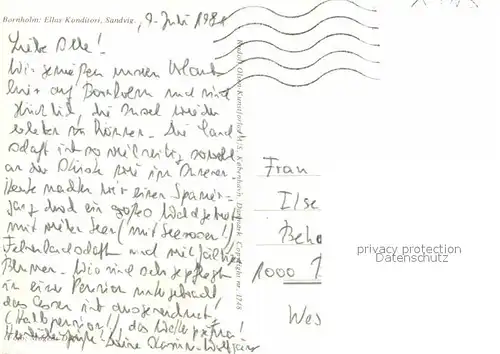 Bornholm: Ellas Konditori, Sandvig.
9. Juli 198
Liebe Alle!
Wir genießen unseren Urlaub
hier auf Bornholm und sind
glücklich, die Insel wieder
erleben zu können. Die Land
schaft ist so vielseitig, sowohl
an der Küste wie im Inneren.
Heute machten wir einen Spazier-
gang durch ein großes Waldgebiet
mit vielen Seen (mit Seerosen!)
Felsenlandschaft und mit
Blumen. Wir sind sehr gepflegt
in einer Pension untergebracht,
das Essen ist ausgezeichnet,
(Halbpension!), das Wetter prima!
Herzliche Grüße! Deine
Frau
Ilse
Beho
1000 1
Wes
privacy protection
Datenschutz